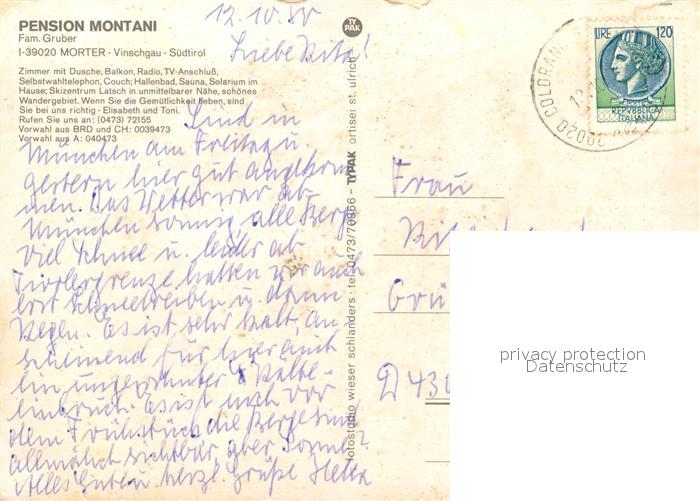 PENSION MONTANI
Fam. Gruber
I-39020 MORTER - Vinschgau - Südtirol
Zimmer mit Dusche, Balkon, Radio, TV-Anschluß,
Selbstwahltelephon, Couch; Hallenbad, Sauna, Solarium im
Hause; Skizentrum Latsch in unmittelbarer Nähe, schönes
Wandergebiet. Wenn Sie die Gemütlichkeit lieben, sind
Sie bei uns richtig - Elisabeth und Toni.
Rufen Sie uns an: (0473) 72155
Vorwahl aus BRD und CH: 0039473
Vorwahl aus A: 040473
12.10.80
Liebe Rita!
Sind in
München am Freitag u.
gestern hier gut angekom-
men. Das Wetter war ab
München sonnig, alle Berge
viel Schnee u. leider ab
Tirolergrenze hatten wir auch
erst Schneetreiben u. dann
Regen. Es ist sehr kalt, an-
scheinend für hier auch
ein ungewohnter Kälte-
einbruch. Es ist noch vor
dem Frühstück die Berge sind
allmählich sichtbar aber Sonne?
Alles Gute u. herzl. Grüße
TYPAK
fotostudio wieser schlanders · tel. 0473/70866 – TYPAK ortisei st. ulrich
LIRE 120
REPVBBLICA
ITALIANA
39020 COLDRANO
Frau
D 430
privacy protection
Datenschutz